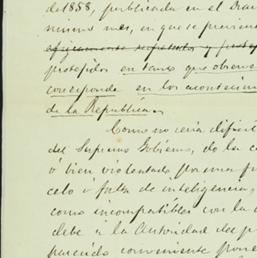 de 1858, publicada en el Diar
mismo mes, en que se previene
eficazmente respetados y
protejidos en tanto que observen
corresponde en los acontecim
de la República.
Como no sería difícil
del Supremo Gobierno, de la c
ó bien violentada por una
celo ó falta de inteligencia,
como incompatibles con la
debe á la Autoridad del p
parecido conveniente pone